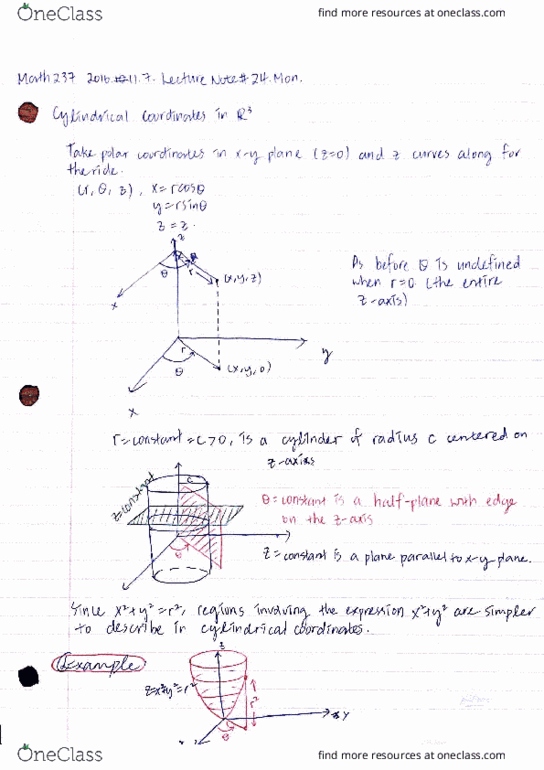 OneClass find more resources at oneclass.com
Math 237 2016 11.7. Lecture Note # 24. Mon.
Cylindrical coordinates in R³
Take polar coordinates in x-y plane (z=0) and z curves along for
the ride.
(r, θ, z), x=rcosθ
y=rsinθ
z=z.
z
As before θ is undefined
when r=0 (the entire
z-axis)
θ r (x,y,z)
x
r
θ (x,y,0)
y
x
r=constant=c>0, is a cylinder of radius c centered on
z-axis
z=constant
c
θ=constant is a half-plane with edge
on the z-axis
z=constant is a plane parallel to x-y plane.
θ
Since x²+y²=r², regions involving the expression x²+y² are simpler
to describe in cylindrical coordinates.
Example
z
z=x²+y²=r²
r²
y
θ
OneClass find more resources at oneclass.com